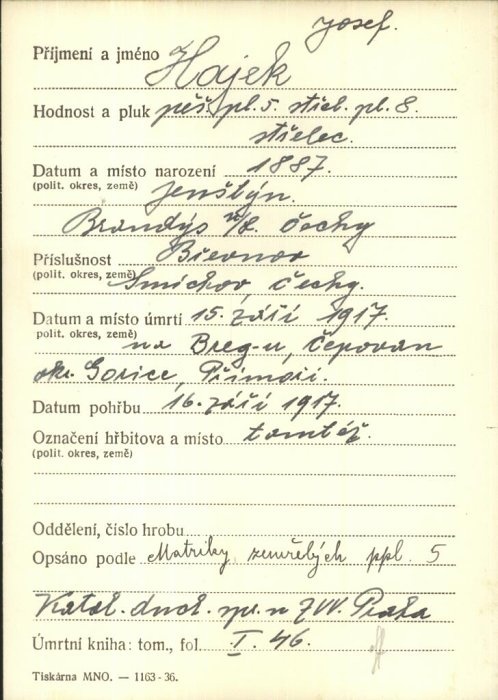 Josef.
Příjmení a jméno Hájek
Hodnost a pluk pěš. pl. 5. střel. pl. 8.
střelec.
Datum a místo narození 1887.
(polit. okres, země) Jenštýn.
Brandýs n/L. Čechy
Příslušnost Břevnov
(polit. okres, země) Smíchov, Čechy.
Datum a místo úmrtí 15. září 1917.
polit. okres, země) na Breg-u, Čepovan
okr. Gorice, Přímoří.
Datum pohřbu 16. září 1917.
Označení hřbitova a místo tamtéž.
(polit. okres, země)
Oddělení, číslo hrobu
Opsáno podle Matriky zemřelých ppl. 5
Katol. duch. spr. u ZVV. Praha
Úmrtní kniha: tom., fol. I. 46.
Tiskárna MNO. — 1163-36.